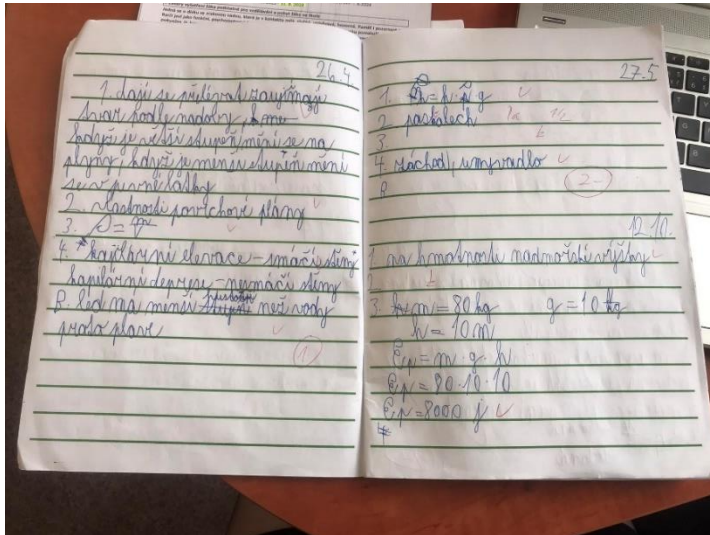 26.4.
1. dají se přelévat zaujímají
tvar podle nadoby,
když je větší stupeň mění se na
plyny, když je menší stupěň mění
se v pevné látky
2. vlastnosti povrchové plány
3.
4. kapilární elevace - smáčí stěny
kapilární deprese - nesmáčí stěny
B. led má menší než vody
proto plave
1
27.5
1. = h · g
2. paskalech Pa 1/2
3.
4. záchod, umyvadlo
B.
2-
12.10.
1. na hmotnosti nadmořské výšky
2.
3. m = 80 kg g = 10
h = 10 m
Ep = m · g · h
Ep = 80 · 10 · 10
Ep = 8000 j